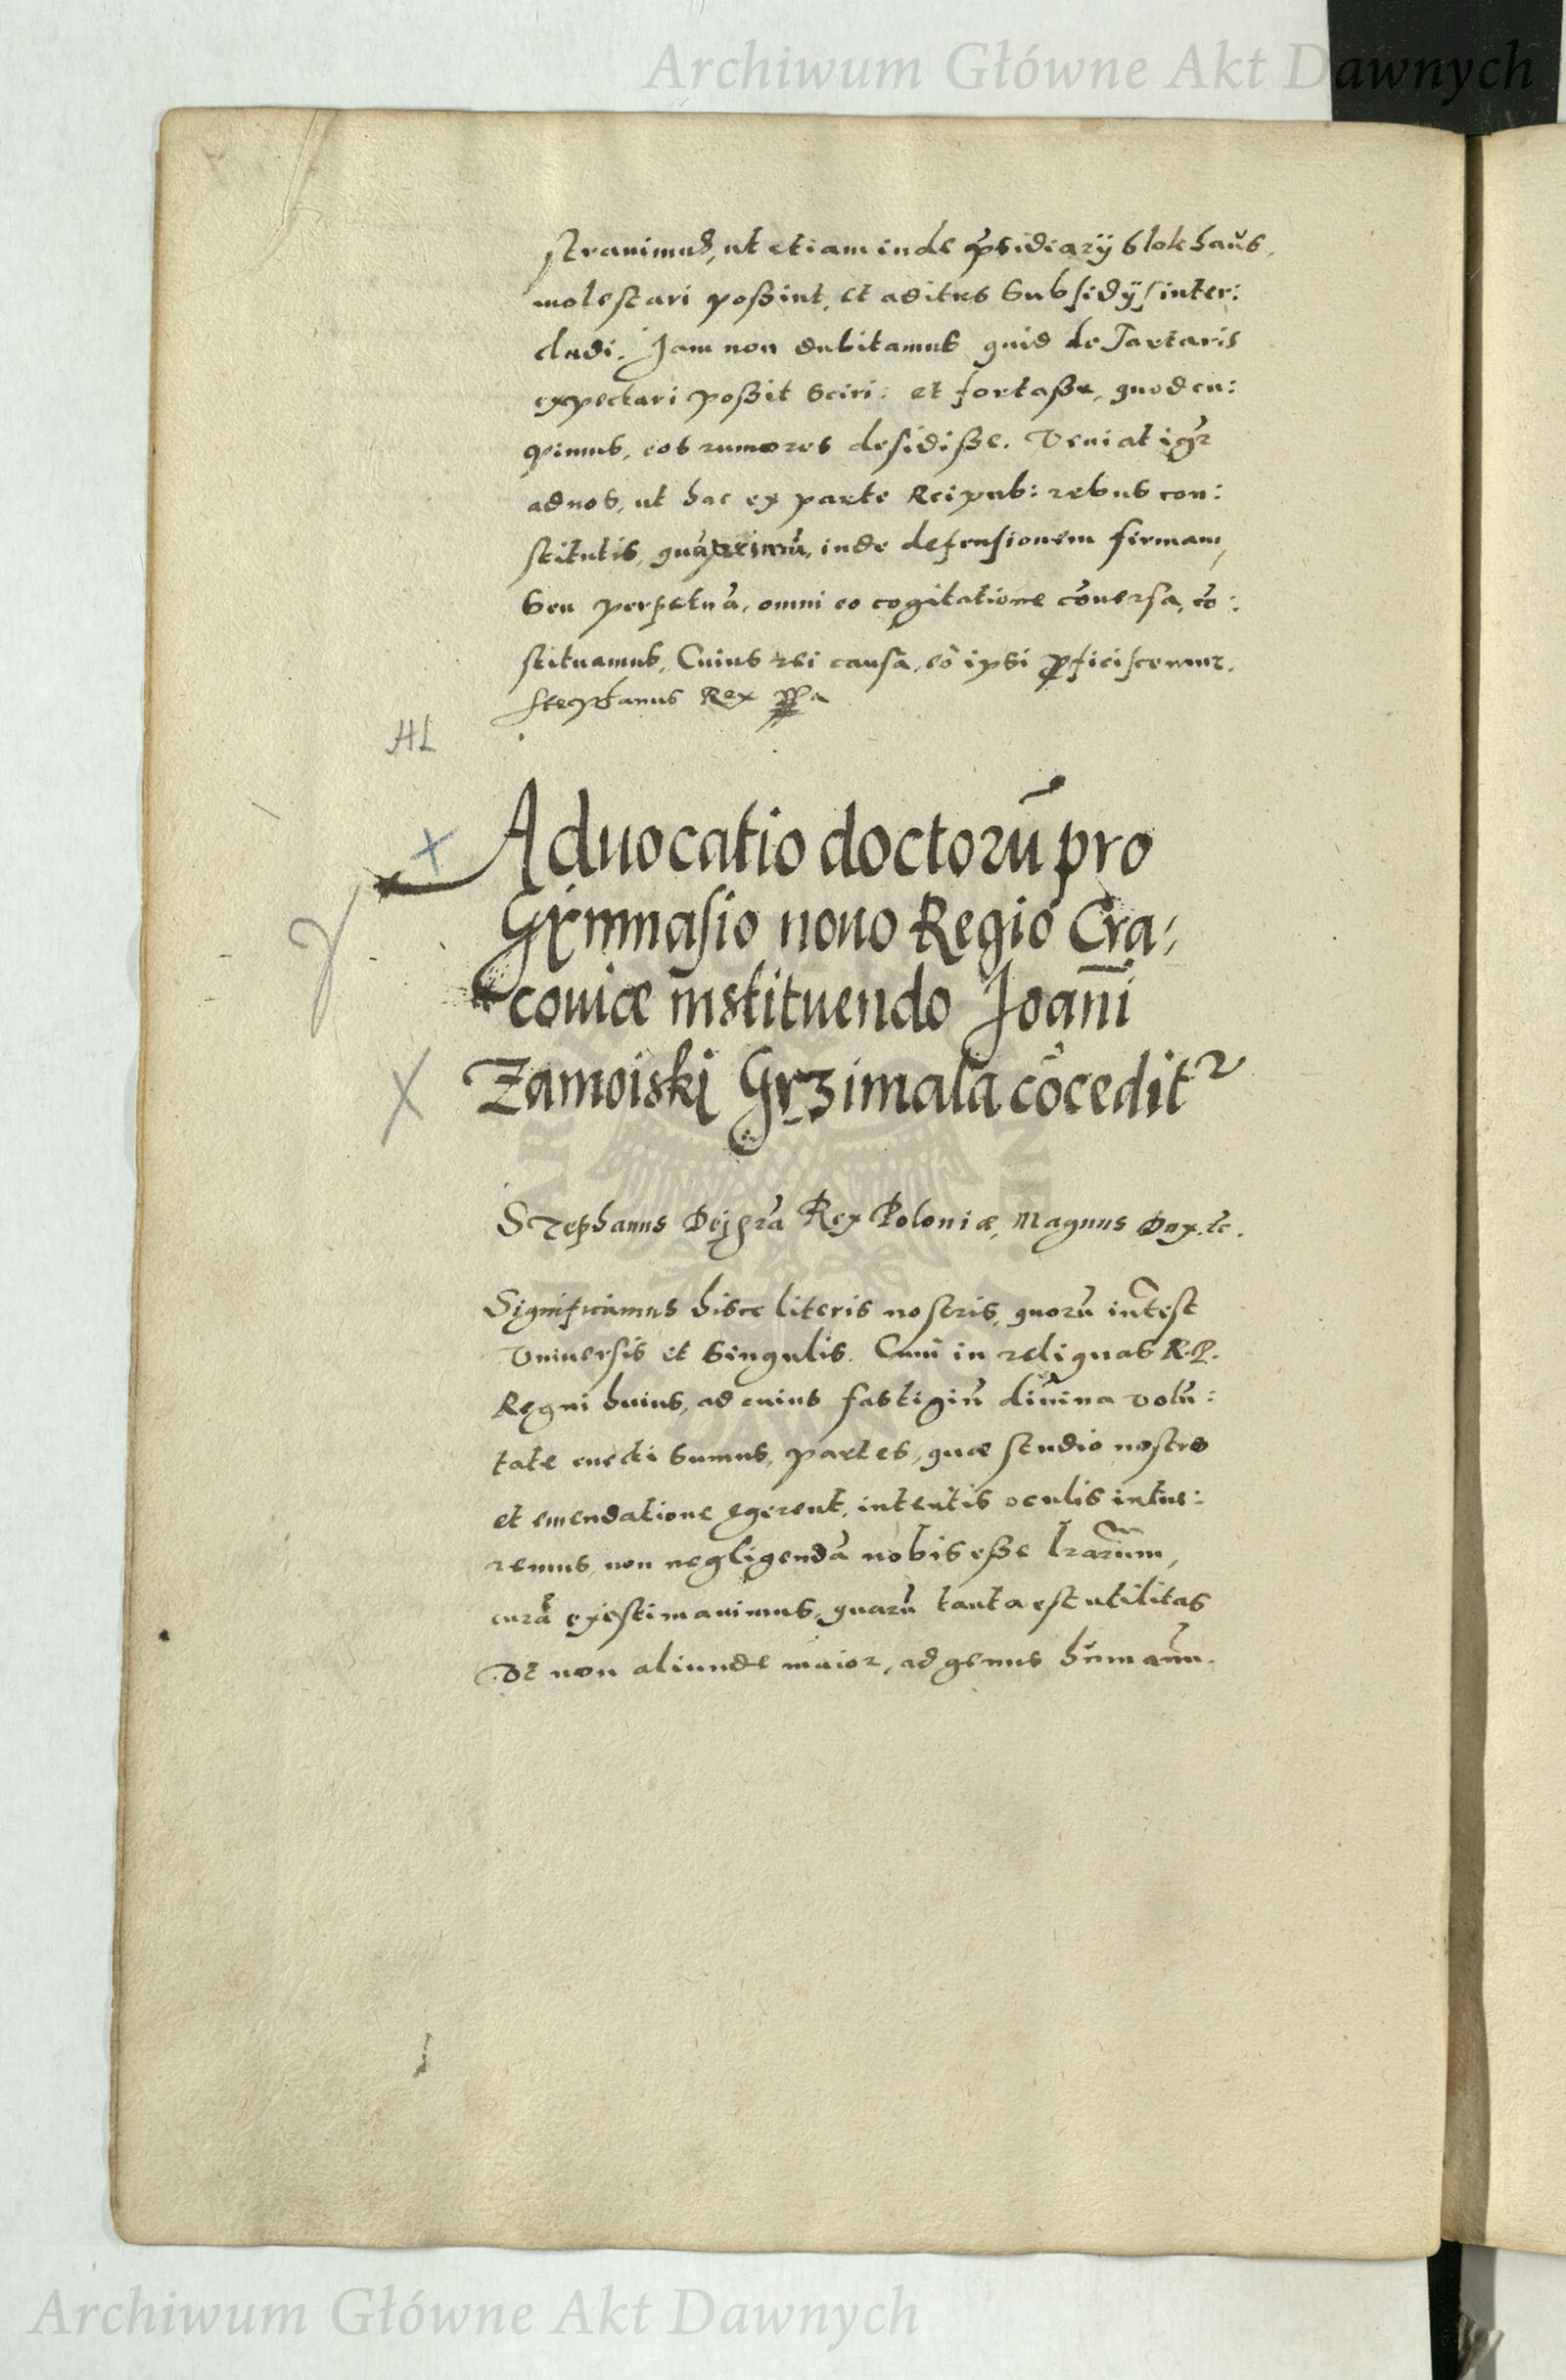 Archiwum Główne Akt Dawnych
strauimus, ut etiam inde p̃sidiarÿ blokhaus,
molestari poßint, et aditus subsidÿs inter:
cludi. Jam non dubitamus quid de Tartaris
expectari poßit sciri: et fortaße, quod cu:
pimus, eos rumores desidiße. Veniat igr̃
ad nos, ut hac ex parte Reipub: rebus con:
stitutis, quàprimũ, inde defensionem firmam,
seu perpetuã, omni eo cogitatione cõuersa, cõ:
stituamus. Cuius rei causa, eò ipsi proficiscemur.
Stephanus Rex
HL
Aduocatio doctorũ pro
Gymnasio nouo Regio Cra,
couiæ instituendo Joañi
Zamoiski Grzimala cõcedit
Stephanus Dei gr̃a Rex Poloniæ, Magnus Dux. etc.
Significamus hisce literis nostris, quorũ int̃est
Vniuersis et singulis. Cum in reliquas R.P.
Regni huius, ad cuius fastigiũ diuina volũ:
tate euecti sumus, partes, quæ studio nostro
et emendatione egerent, intentis oculis intue:
remus, non negligendã nobis eße lr̃arum,
curã existimauimus, quarũ tanta est utilitas
Vt non aliunde maior, ad genus humanũ.
Archiwum Główne Akt Dawnych